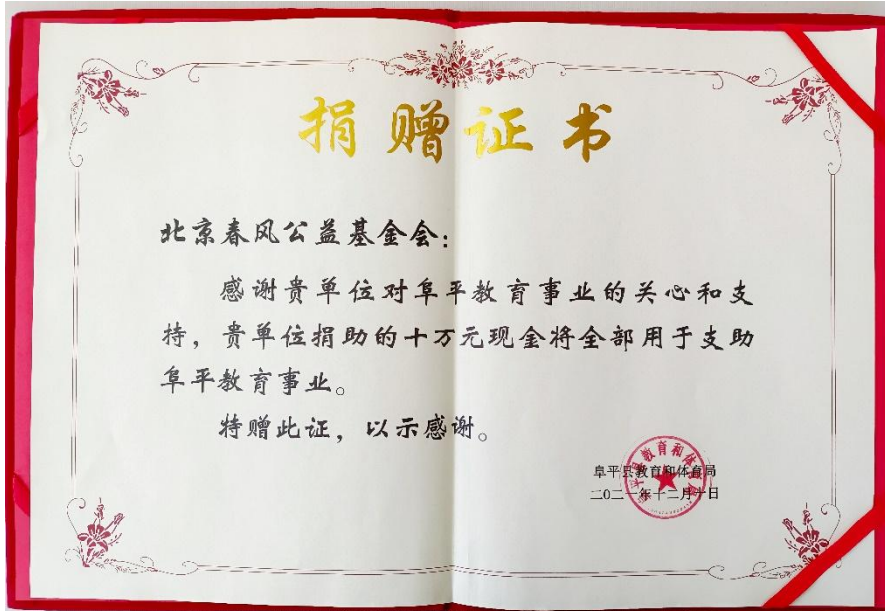 捐赠证书
北京春风公益基金会:
感谢贵单位对阜平教育事业的关心和支
持，贵单位捐助的十万元现金将全部用于支助
阜平教育事业。
特赠此证，以示感谢。
阜平县教育和体育局
二〇二一年十二月十日